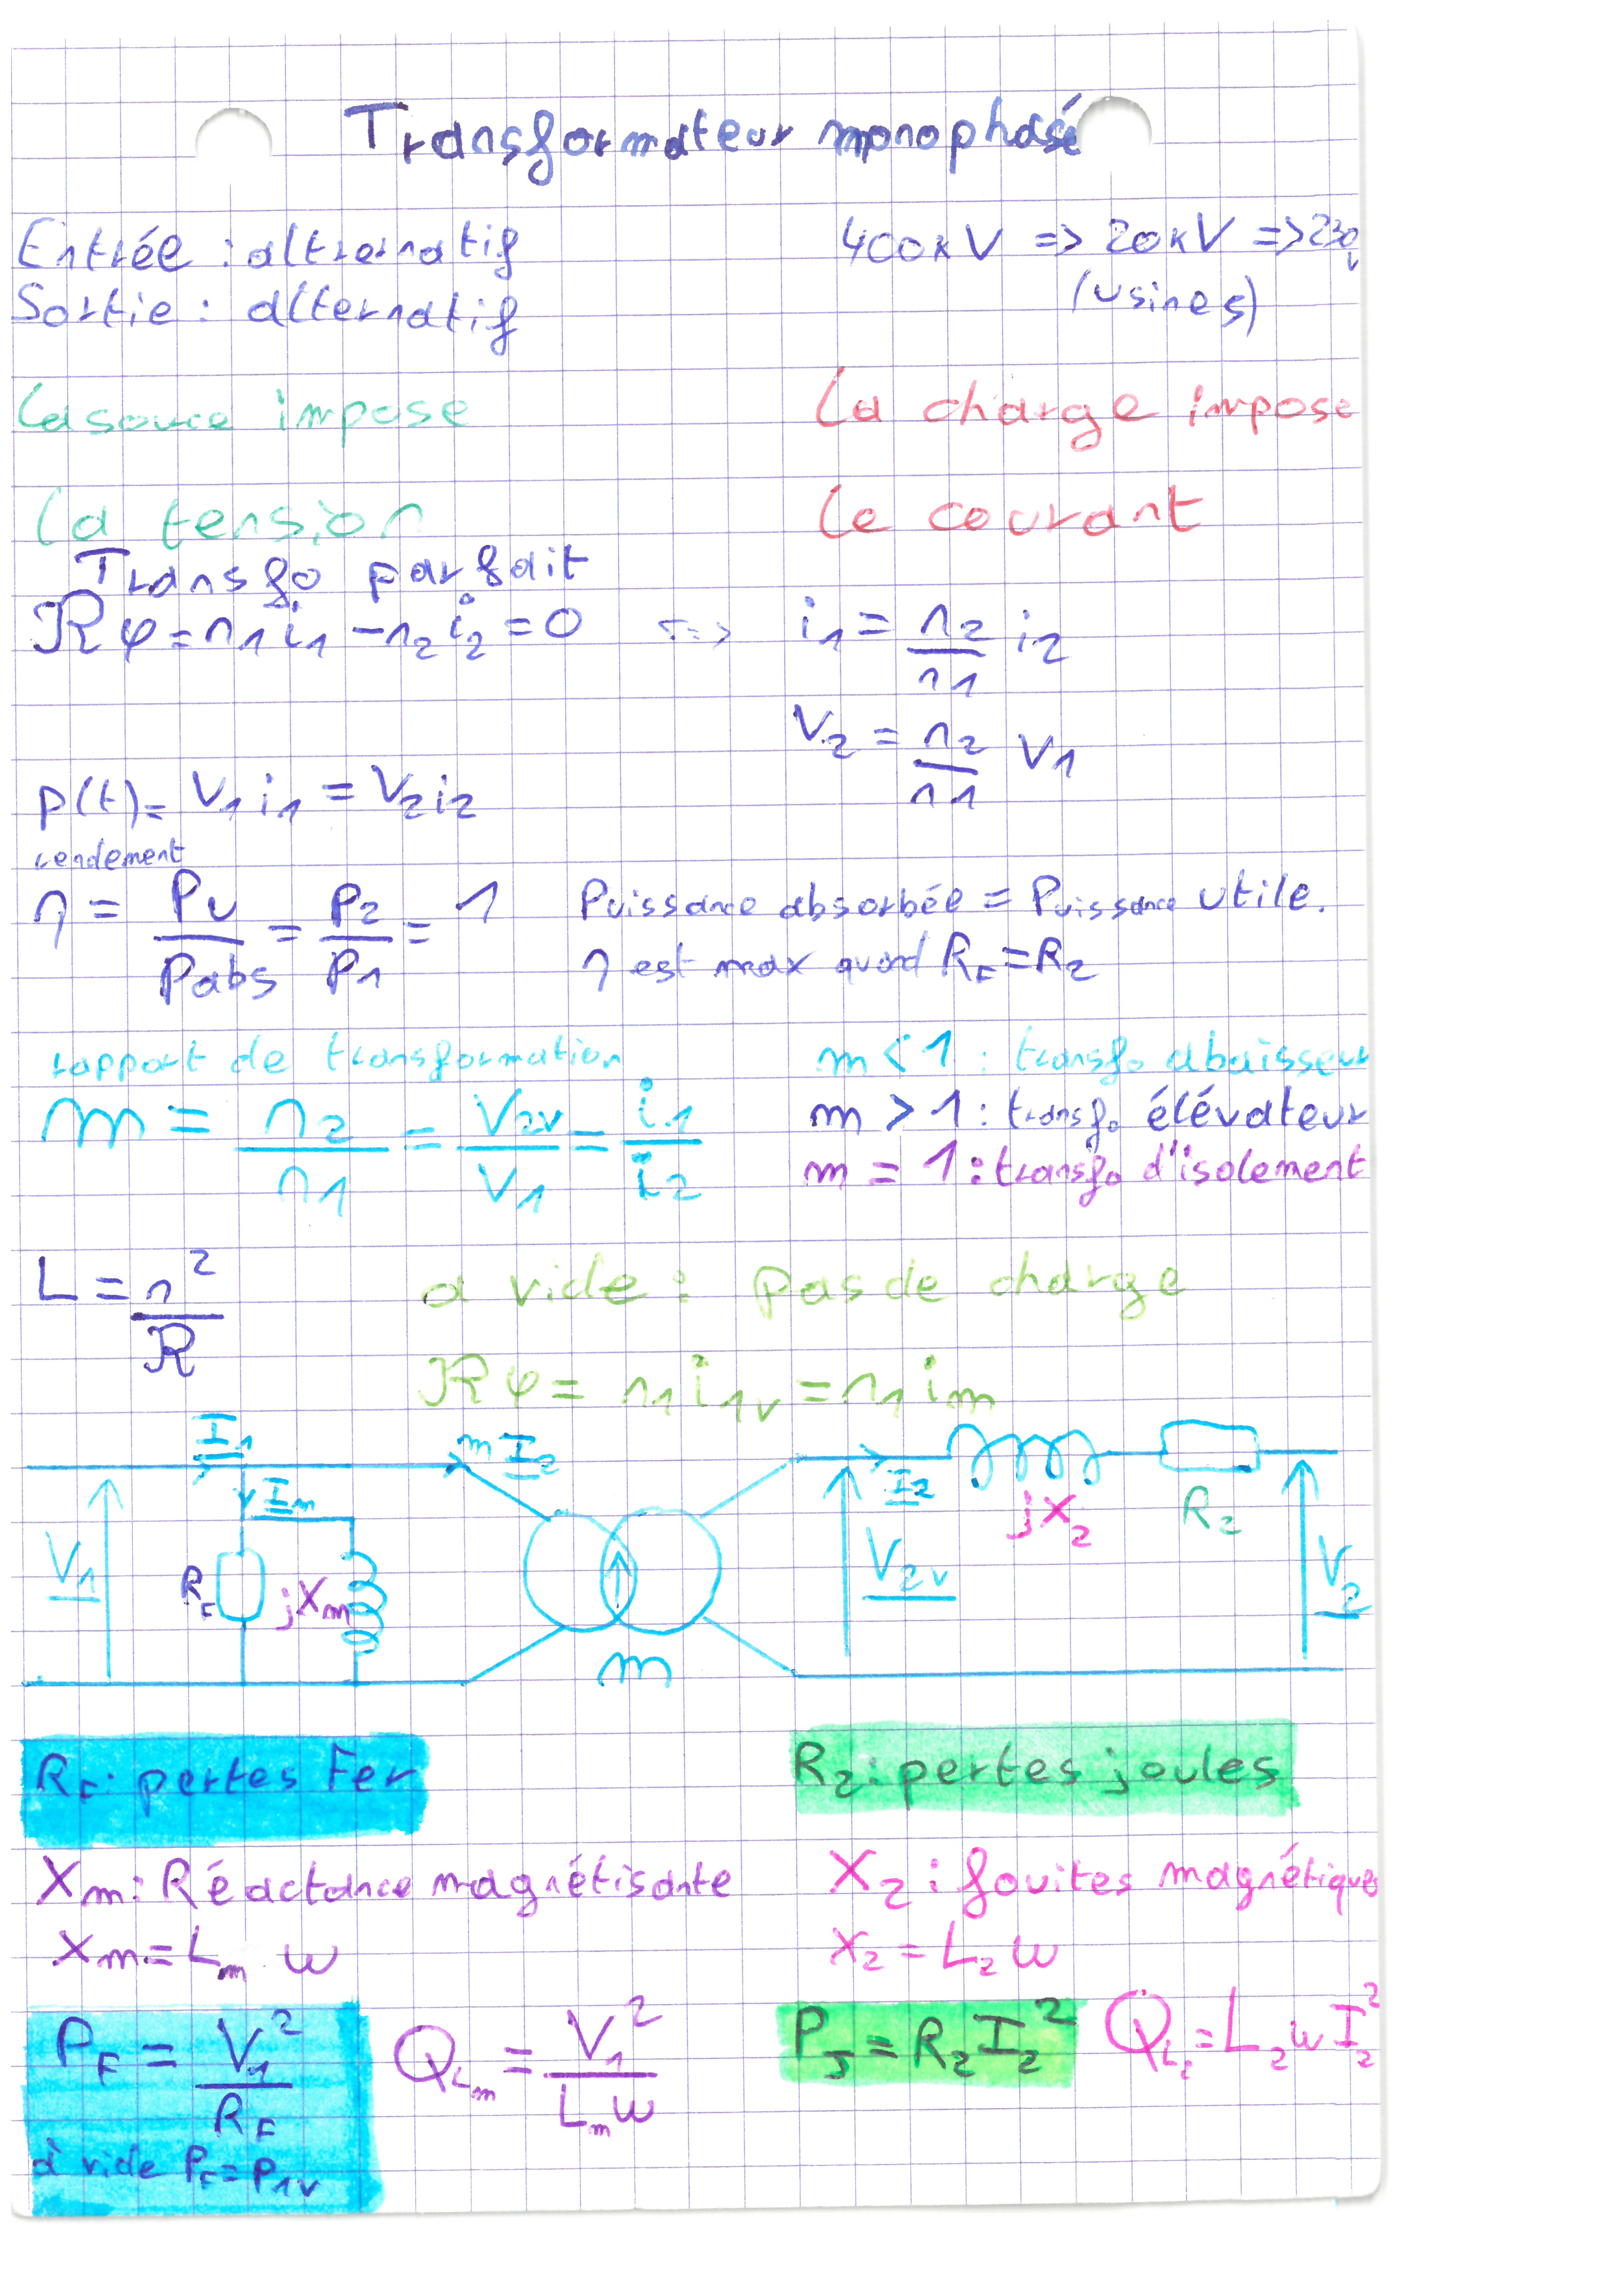 Transformateur monophasé
Entrée : alternatif
400kV => 20kV => 230V
Sortie : alternatif
(usines)
La source impose
La charge impose
la tension
le courant
Transfo parfait
ℛφ = n1 i1 - n2 i2 = 0 => i1 = n2/n1 i2
V2 = n2/n1 V1
p(t) = V1 i1 = V2 i2
rendement
η = Pu/Pabs = P2/P1 = 1
Puissance absorbée = Puissance utile.
η est max quand RF = R2
rapport de transformation
m = n2/n1 = V2v/V1 = i1/i2
m < 1 : transfo abaisseur
m > 1 : transfo élévateur
m = 1 : transfo d'isolement
L = n²/ℛ
a vide : pas de charge
ℛφ = n1 i1v = n1 im
I1
m I2
Im
I2
jX2
R2
V1
RF
jXm
V2v
V2
m
RF : pertes Fer
R2 : pertes joules
Xm : Réactance magnétisante
X2 : fouites magnétiques
Xm = Lm w
X2 = L2 w
PF = V1²/RF
QLm = V1²/Lm w
PJ = R2 I2²
QL2 = L2 w I2²
à vide PF = P1v